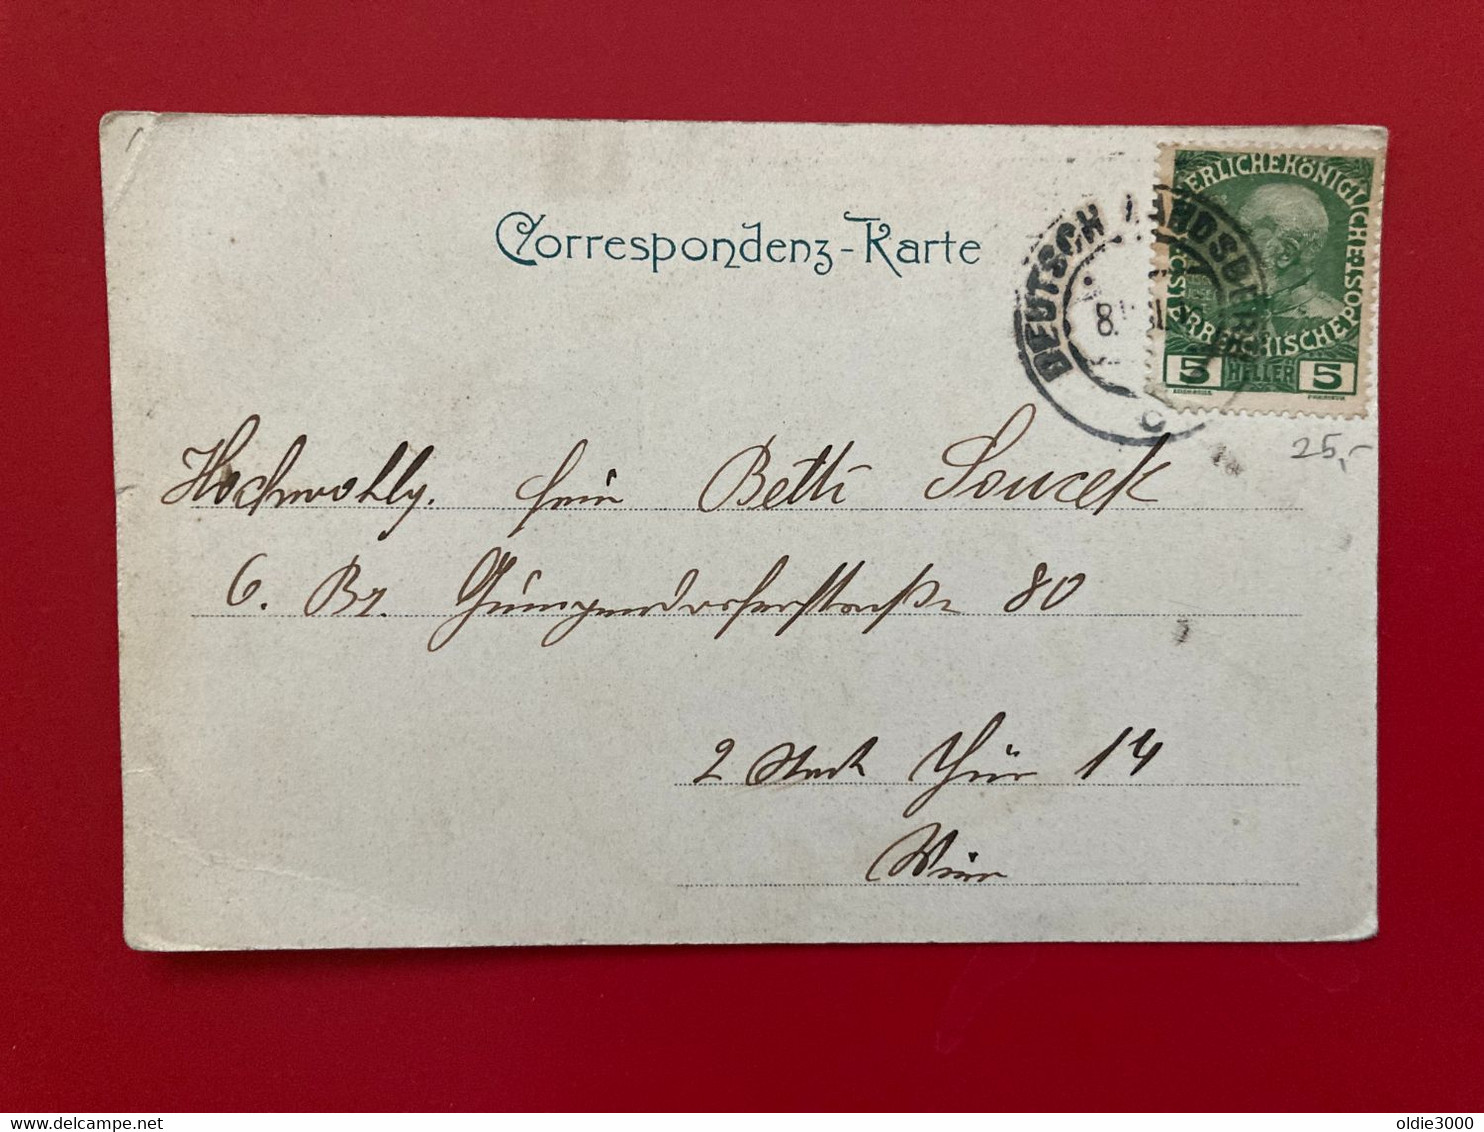 Correspondenz-Karte
DEUTSCH LANDSBERG
KAISERLICHEKÖNIGLICHE ÖSTERREICHISCHEPOST
5 HELLER 5
25,-
Hochwohlg. Frln Betti Soucek
6. Bz. Gumpendorferstraße 80
2 Stock Thür 14
Wien
delcampe.net
oldie3000